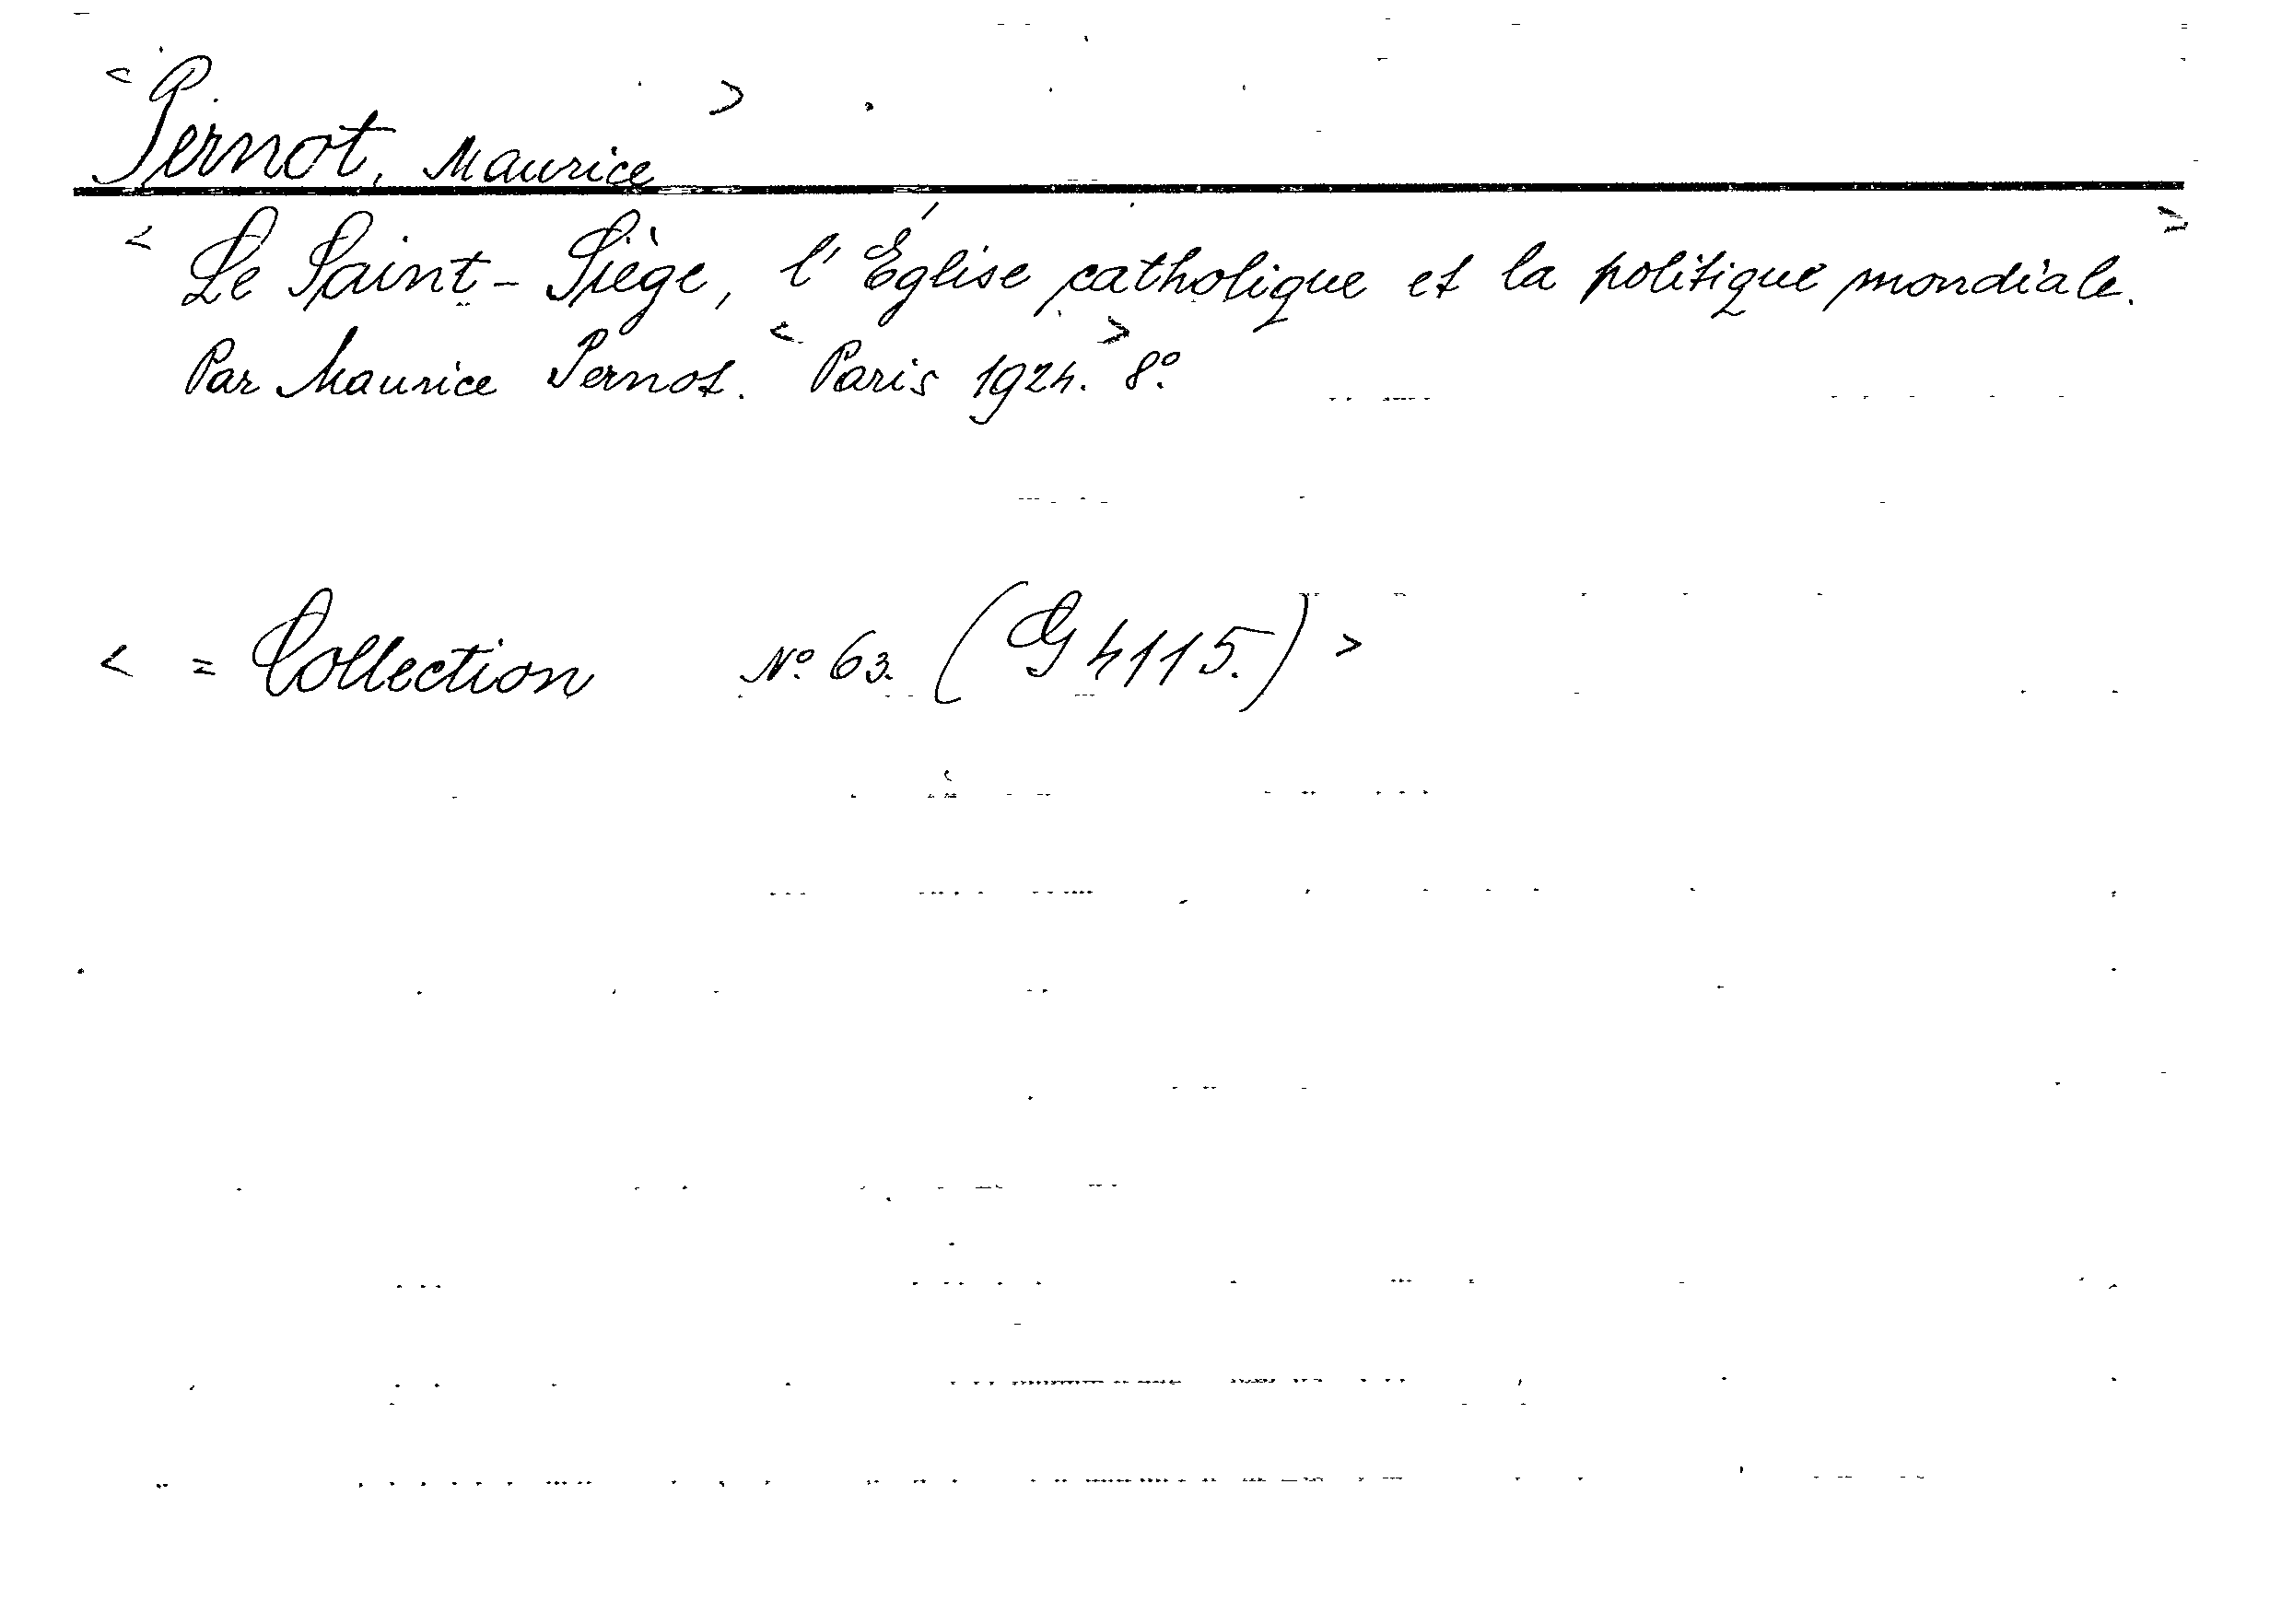 < Pernot, Maurice >
< Le Saint-Siège, l'Église catholique et la politique mondiale. >
Par Maurice Pernot. < Paris 1924. > 8º.
< = Collection Nº 63. (G 4115.) >